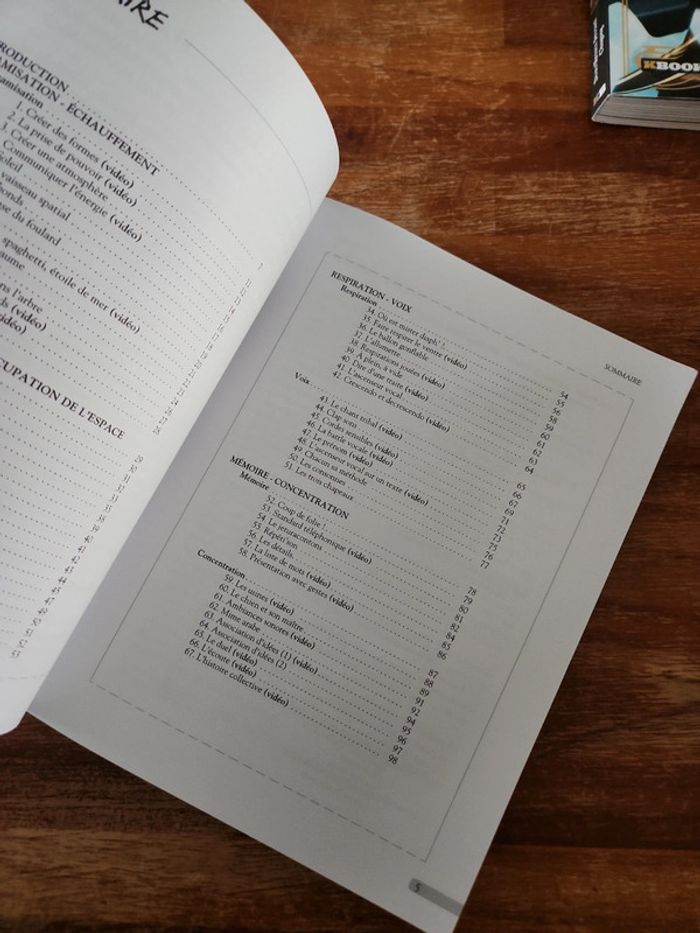 AIRE
RODUCTION
AMISATION - ÉCHAUFFEMENT
amisation
1. Créer des formes (vidéo)
2. La prise de pouvoir (vidéo)
3. Créer une atmosphère
Communiquer l'énergie (vidéo)
oleil
vaisseau spatial
onds
se du foulard
spaghetti, étoile de mer (vidéo)
aume
ns l'arbre
ds (vidéo)
idéo)
CUPATION DE L'ESPACE
29
30
31
31
32
35
38
39
40
41
42
43
44
45
46
48
50
52
53
SOMMAIRE
RESPIRATION - VOIX
Respiration
34. Où est mister diaph' ! 54
35. Faire respirer le ventre (vidéo) 55
36. Le ballon gonflable 56
37. L'allumette 58
38. Respirations jouées (vidéo) 59
39. À plein, à vide 60
40. Dire d'une traite (vidéo) 61
41. L'ascenseur vocal 62
42. Crescendo et decrescendo (vidéo) 63
64
Voix
43. Le chant tribal (vidéo) 65
44. Clap sons 66
45. Cordes sensibles (vidéo) 67
46. La battle vocale (vidéo) 69
47. Le prénom (vidéo) 71
48. L'ascenseur vocal sur un texte (vidéo) 72
49. Chacun sa méthode 73
50. Les consonnes 75
51. Les trois chapeaux 76
77
MÉMOIRE - CONCENTRATION
Mémoire
52. Coup de folie ! 78
53. Standard téléphonique (vidéo) 79
54. Le jeturacontons 80
55. Répéti'son 81
56. Les détails 82
57. La liste de mots (vidéo) 84
58. Présentation avec gestes (vidéo) 85
86
Concentration
59. Les usines (vidéo) 87
60. Le chien et son maître 88
61. Ambiances sonores (vidéo) 89
62. Mime arabe 91
63. Association d'idées (1) (vidéo) 92
64. Association d'idées (2) 94
65. Le duel (vidéo) 95
66. L'écoute (vidéo) 96
67. L'histoire collective (vidéo) 97
98
5
KBOOK